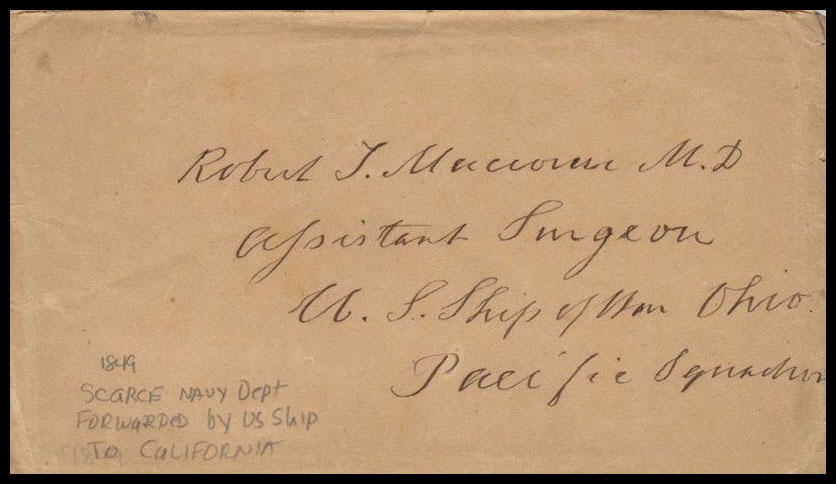 Robert T. Maccoun M.D
Assistant Surgeon
U. S. Ship of War Ohio.
Pacific Squadron
1849
SCARCE NAVY Dept
FORWARDED by US Ship
TO CALIFORNIA